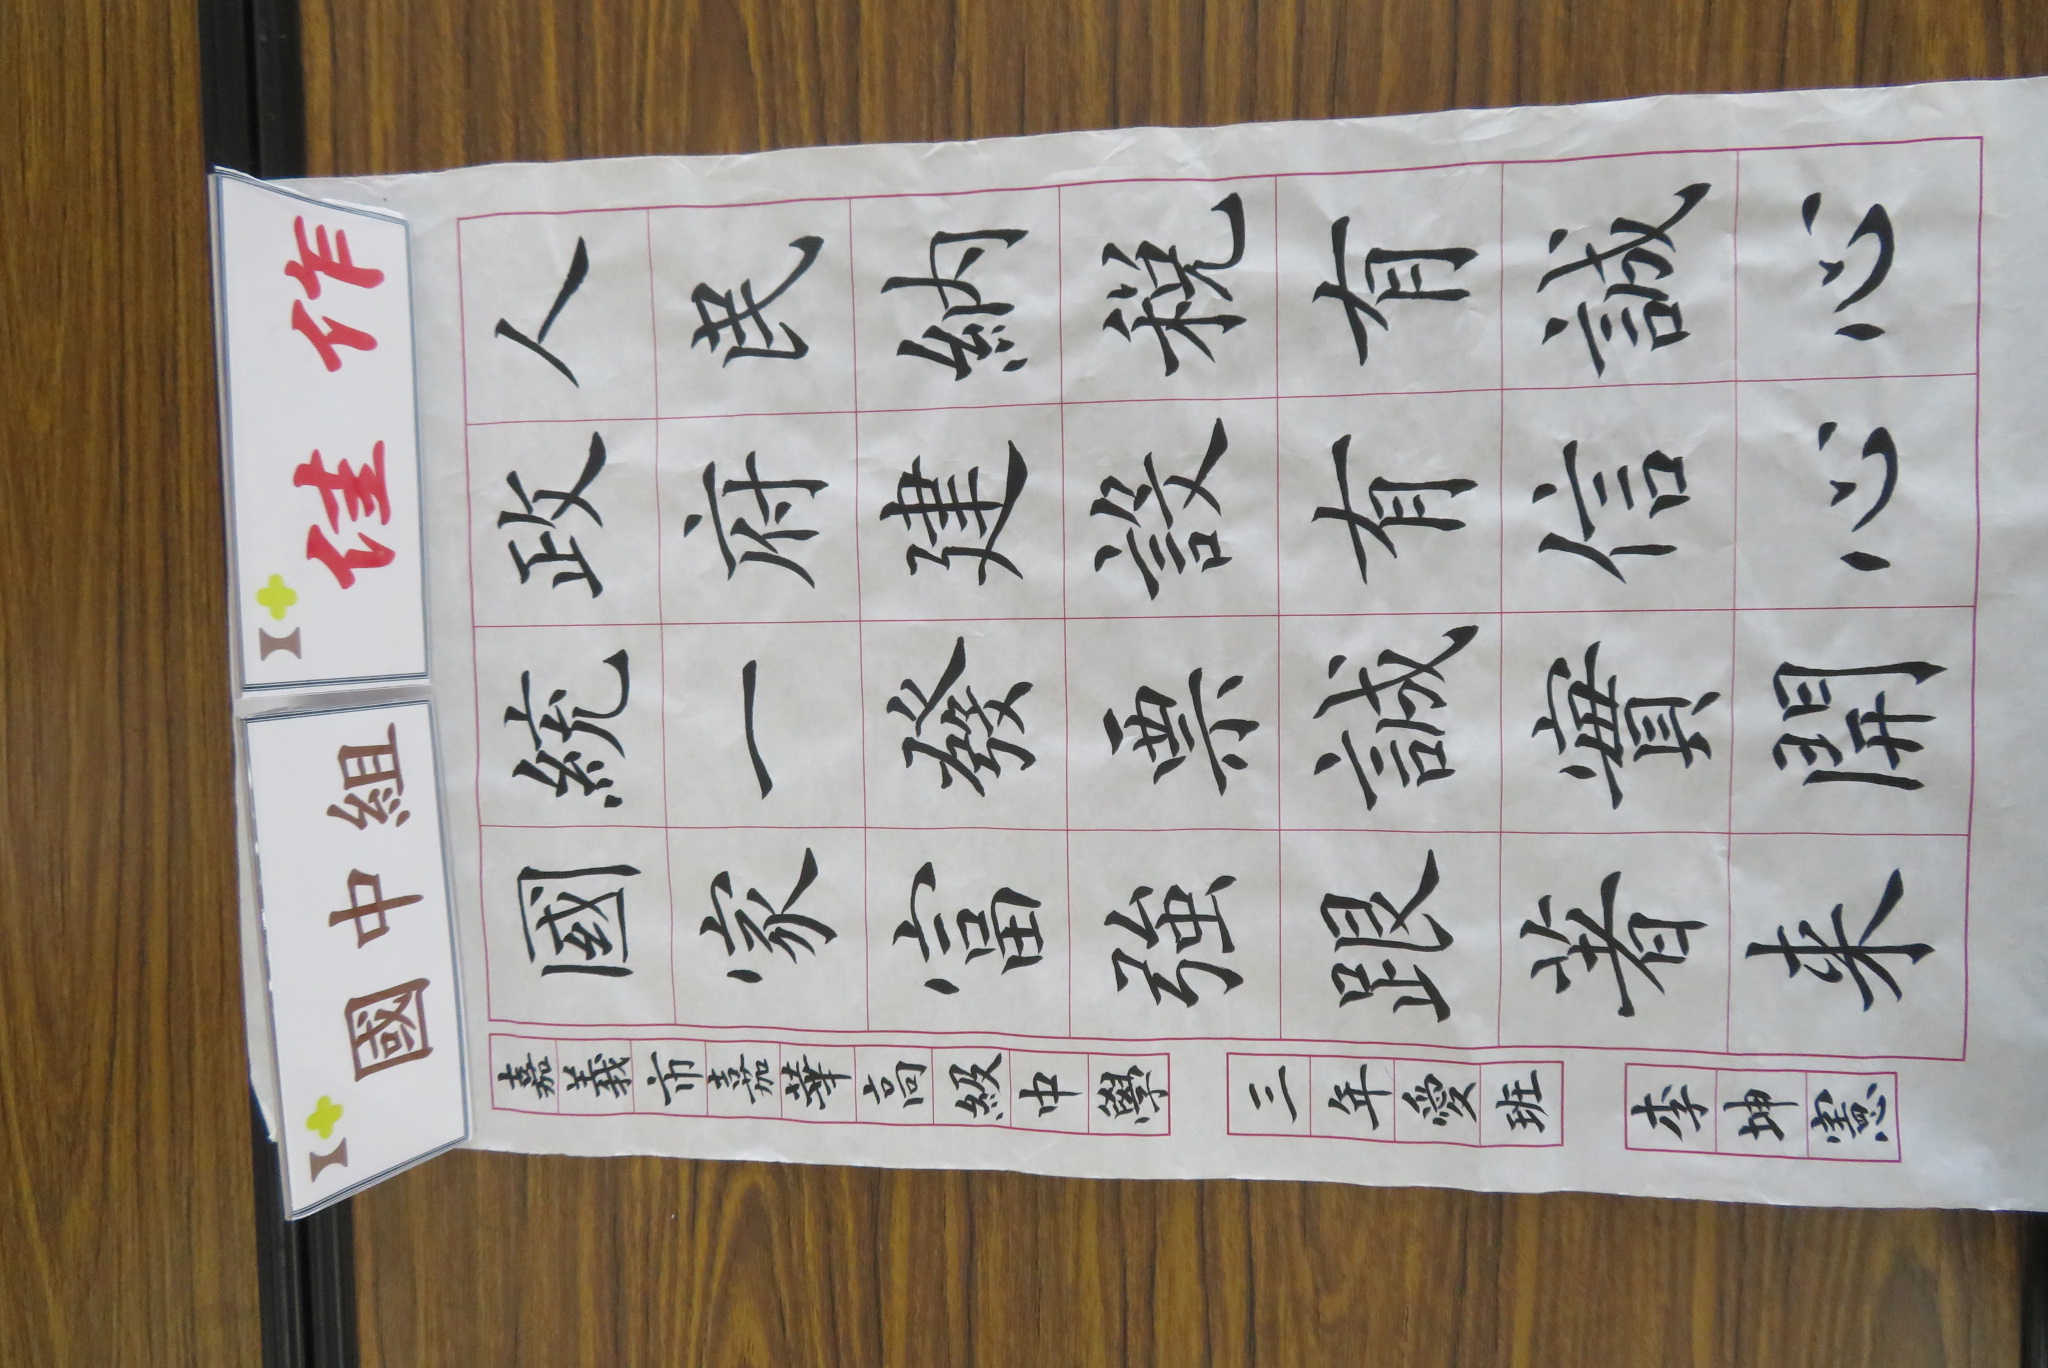 國中組
佳作
人民納稅有誠心
政府建設有信心
統一發票誠實開
國家富強跟著來
嘉義市嘉華高級中學
三年愛班
李坤憲